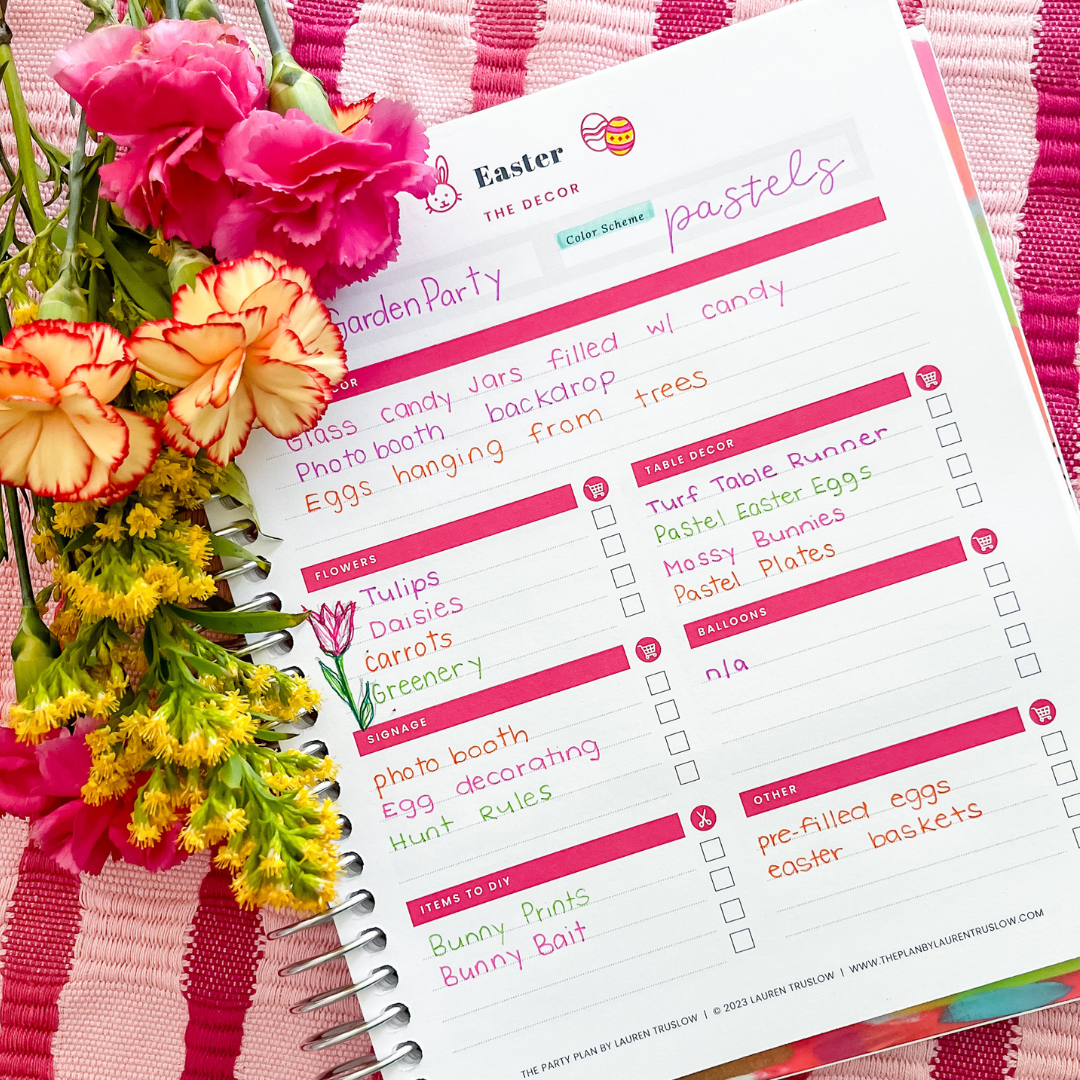 Easter
THE DECOR
Garden Party
Color Scheme pastels
Glass candy jars filled w/ candy
Photo booth backdrop
Eggs hanging from trees
FLOWERS
Tulips
Daisies
carrots
Greenery
SIGNAGE
photo booth
Egg decorating
Hunt Rules
ITEMS TO DIY
Bunny Prints
Bunny Bait
TABLE DECOR
Turf Table Runner
Pastel Easter Eggs
Mossy Bunnies
Pastel Plates
BALLOONS
n/a
OTHER
pre-filled eggs
easter baskets
THE PARTY PLAN BY LAUREN TRUSLOW | © 2023 LAUREN TRUSLOW | WWW.THEPLANBYLAURENTRUSLOW.COM